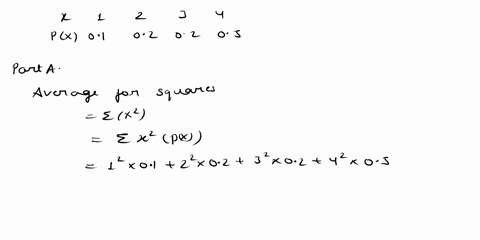 x 1 2 3 4
P(x) 0.1 0.2 0.2 0.5
Part A.
Average for squares
= Σ(x²)
= Σ x² (p(x))
= 1² × 0.1 + 2² × 0.2 + 3² × 0.2 + 4² × 0.5